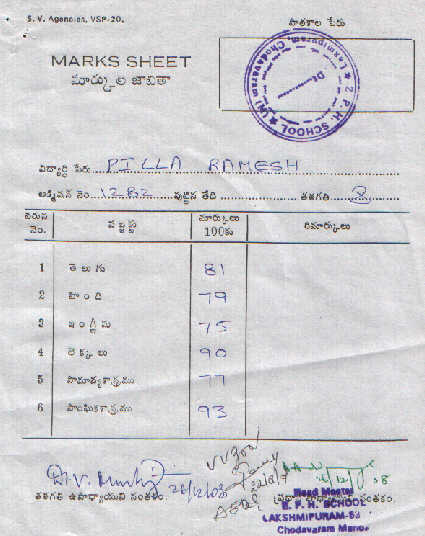 S. V. Agencies, VSP-20.
పాఠశాల పేరు
MARKS SHEET
మార్కుల జాబితా
Z. P. H. SCHOOL (N)
Lakshmipuram, Chodavaram
Dt
విద్యార్థి పేరు PILLA RAMESH
అడ్మిషన్ నెం. 1282 పుట్టిన తేది తరగతి 8
వరుస నెం. సబ్జెక్టు మార్కులు 100కు రిమార్కులు
1 తెలుగు 81
2 హింది 79
3 ఇంగ్లీషు 75
4 లెక్కలు 90
5 సామాన్యశాస్త్రము 77
6 సాంఘికశాస్త్రము 93
తరగతి ఉపాధ్యాయుని సంతకం.
Head Master
Z. P. H. SCHOOL
LAKSHMIPURAM-53
Chodavaram